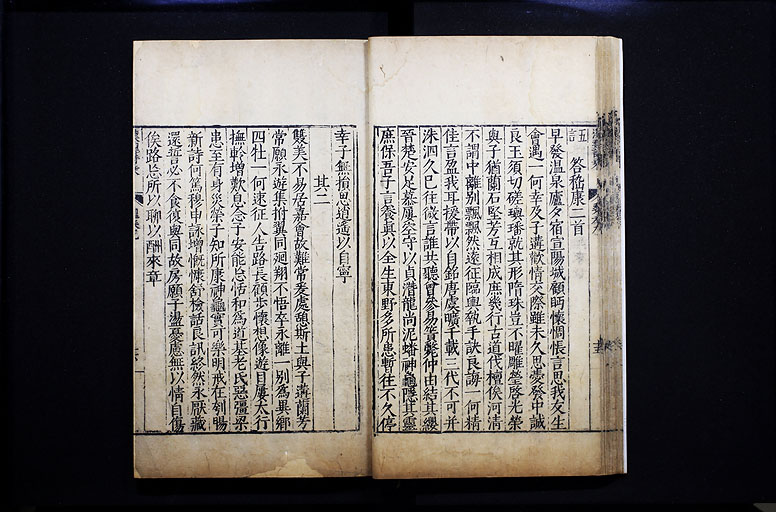 五言
答嵇康二首
早發溫泉廬夕宿宣陽城顧眄懷惆悵言思我友生
會遇一何幸及子遘歡情交際雖未久思愛發中誠
良玉須切磋璵璠就其形隋珠豈不曜雕瑩啓光榮
與子猶蘭石堅芳互相成庶幾行古道伐檀俟河清
不謂中離別飄飄然遠征臨輿執手訣良誨一何精
佳言盈我耳援帶以自銘唐虞曠千載三代不可并
洙泗久已往微言誰共聽曾參易簀斃仲由結其纓
晉楚安足慕屢空守以貞潛龍尚泥蟠神龜隱其靈
庶保吾子言養真以全生東野多所患暫往不久停
幸子無損思逍遙以自寧
其二
雙美不易居嘉會故難常爰處憩斯土與子遘蘭芳
常願永遊集拊翼同迴翔不悟卒永離一別爲異鄉
四牡一何速征人告路長顧步懷想像遊目屢太行
撫軫增歎息念子安能忘恬和爲道基老氏惡彊梁
患至有身災榮子知所康神龜實可樂明戒在刳腸
新詩何篤穆申詠增慨慷舒檢話良訊終然永厭藏
還誓必不食復與同故房願子盪憂慮無以情自傷
俟路忘所以聊以酬來章